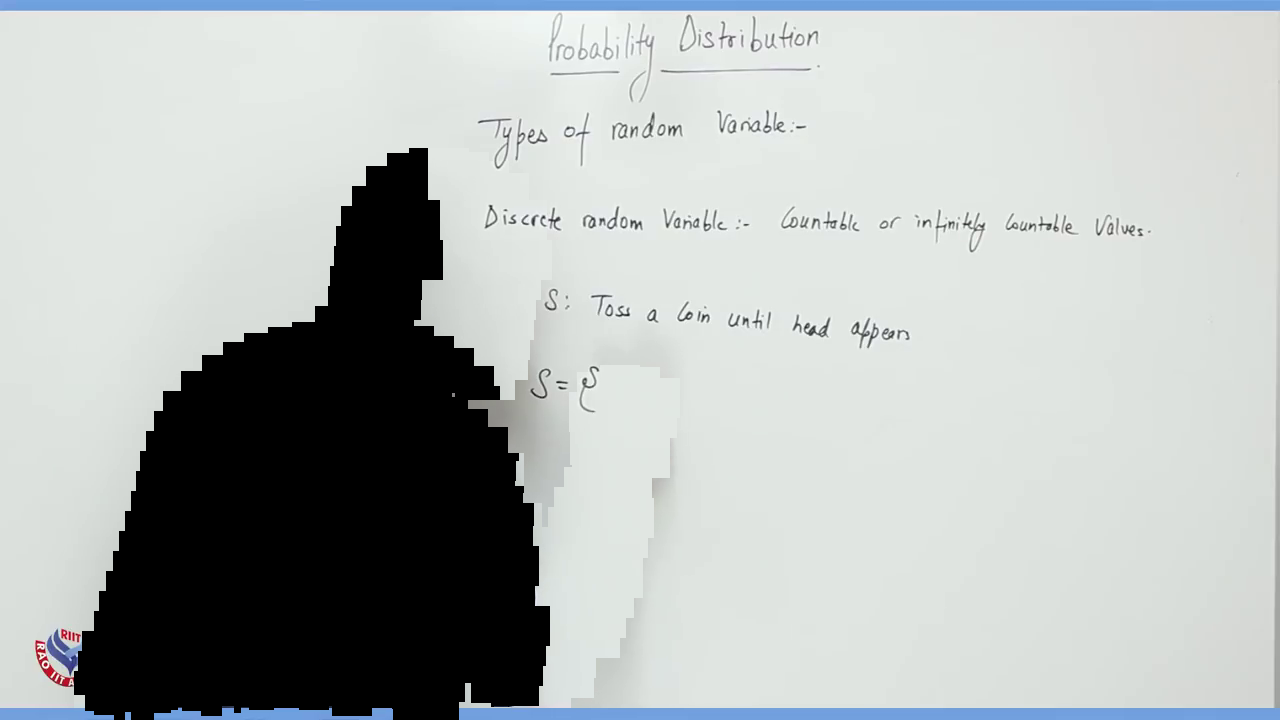 Probability Distribution
Types of random Variable:-
Discrete random Variable:- Countable or infinitely Countable Values.
S: Toss a Coin until head appears
S = {
RIIT
RAO IIT A